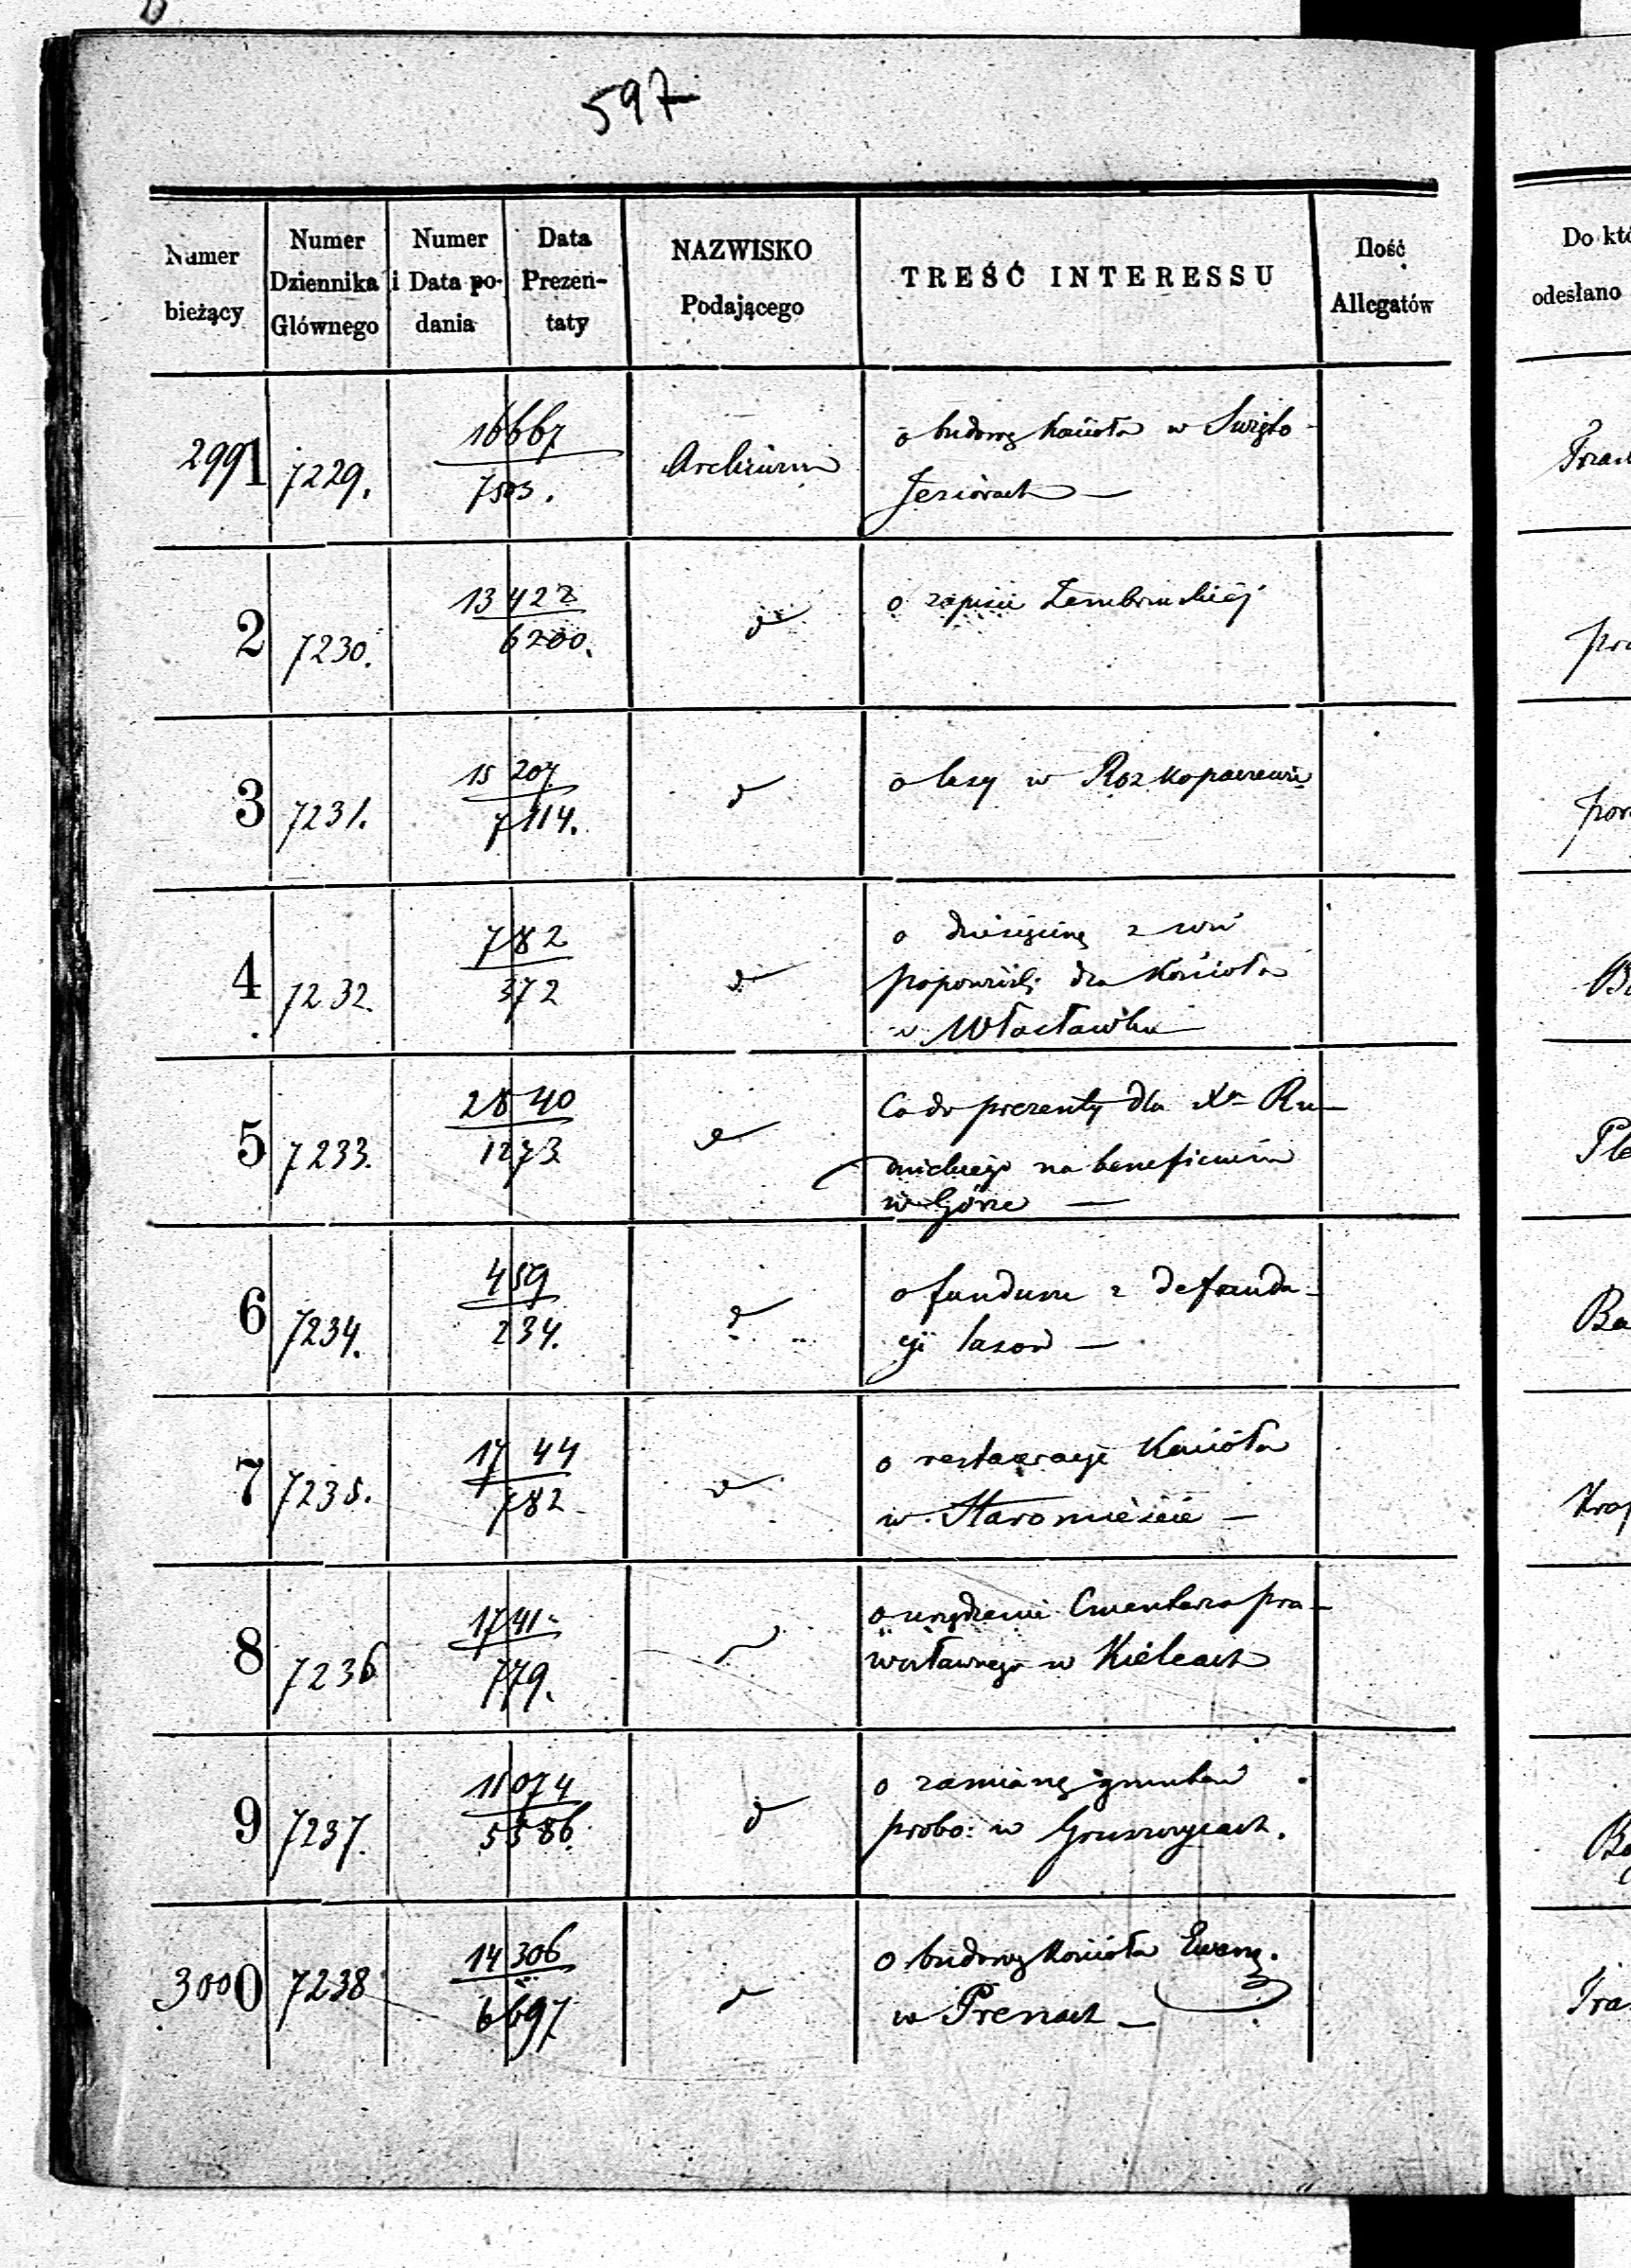 597
Numer bieżący | Numer Dziennika Głównego | Numer i Data podania | Data Prezentaty | NAZWISKO Podającego | TREŚĆ INTERESSU | Ilość Allegatów | Do któ odesłano
2991 7229. 16667 / 7503. Archiwum o budowę Kościoła w Święto-
Jeziorach —
2 7230. 13422 / 6200. d o zapisie
3 7231. 15207 / 7114. d o lasy w Rozkopaczewie
4 7232. 782 / 372 d o dziesięcinę z wsi
dla Kościoła
w Włocławku —
5 7233. 2840 / 1273 d Co do prezenty dla Xa Ru-
dnickiego na beneficium
w Górze —
6 7234. 459 / 234. d o fundusz z defrauda-
cyi lasów —
7 7235. 1744 / 782 d o restauracyę Kościoła
w Staromieście —
8 7236 1741 / 779. o urządzenie Cmentarza pra-
wosławnego w Kielcach
9 7237. 11074 / 5586. d o zamianę gruntów
probo: w
3000 7238 14306 / 6697 d o budowę Kościoła Ewang.
w Prenach —